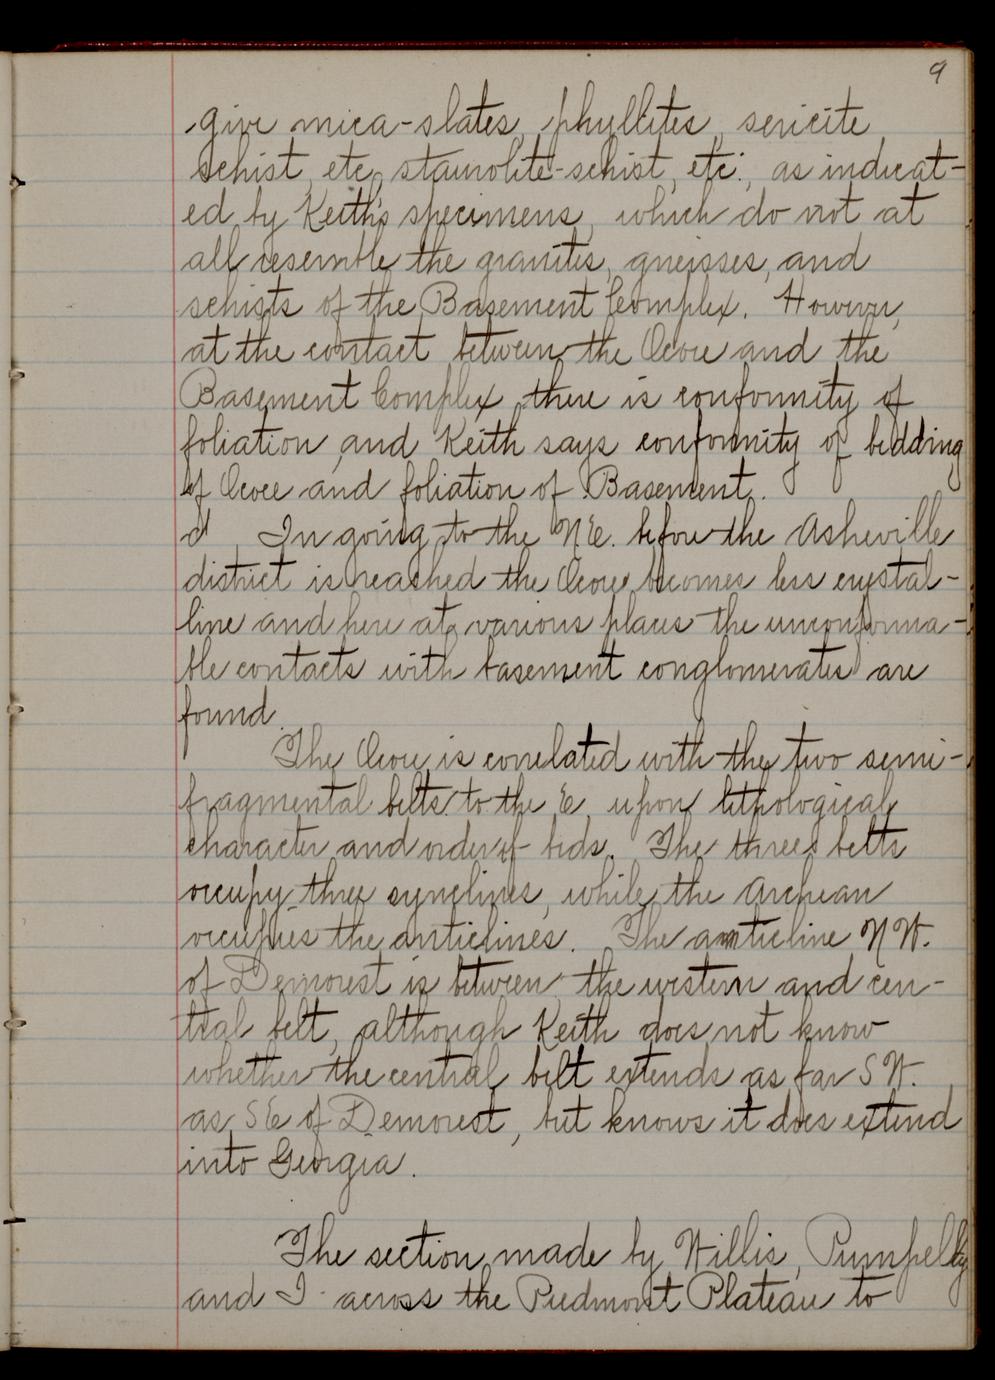 9
give mica-slates, phyllites, sericite
schist, etc, staurolite-schist, etc., as indicat-
ed by Keith's specimens, which do not at
all resemble the granites, gneisses, and
schists of the Basement Complex. However,
at the contact between the Ocoee and the
Basement Complex there is conformity of
foliation, and Keith says conformity of bedding
of Ocoee and foliation of Basement.
d. In going to the N.E. before the Asheville
district is reached the Ocoee becomes less crystal-
line and here at various places the unconforma-
ble contacts with basement conglomerates are
found.
The Ocoee is correlated with the two semi-
fragmental belts to the E. upon lithological
character and order of beds. The three belts
occupy three synclines, while the Archean
occupies the anticlines. The anticline N.W.
of Demorest is between the western and cen-
tral belt, although Keith does not know
whether the central belt extends as far S.W.
as SE of Demorest, but knows it does extend
into Georgia.
The section made by Willis, Pumpelly
and I across the Piedmont Plateau to